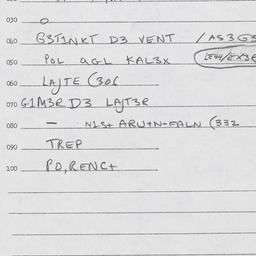 030 O
040 G3T1NKT D3 VENT /AS3G3
050 POL AGL KAL3X
060 LAJTE (306
070 G1M3R D3 LAJT3R
080 — N1S+ ARU+N-FALN (332
090 TREP
100 PO,RENC+